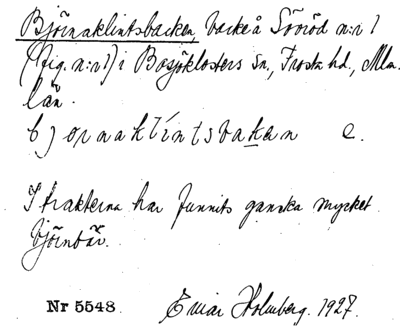 Björnaklintsbacken, backe å Söröd n:r 1
(fig. n:r 1) i Bosjöklosters sn., Frosta hd., Mlm.
län.
b j ö r n a k l i n t s b a k e n e.
I trakterna har funnits ganska mycket
björnbär.
Nr 5548 Einar Holmberg. 1927.